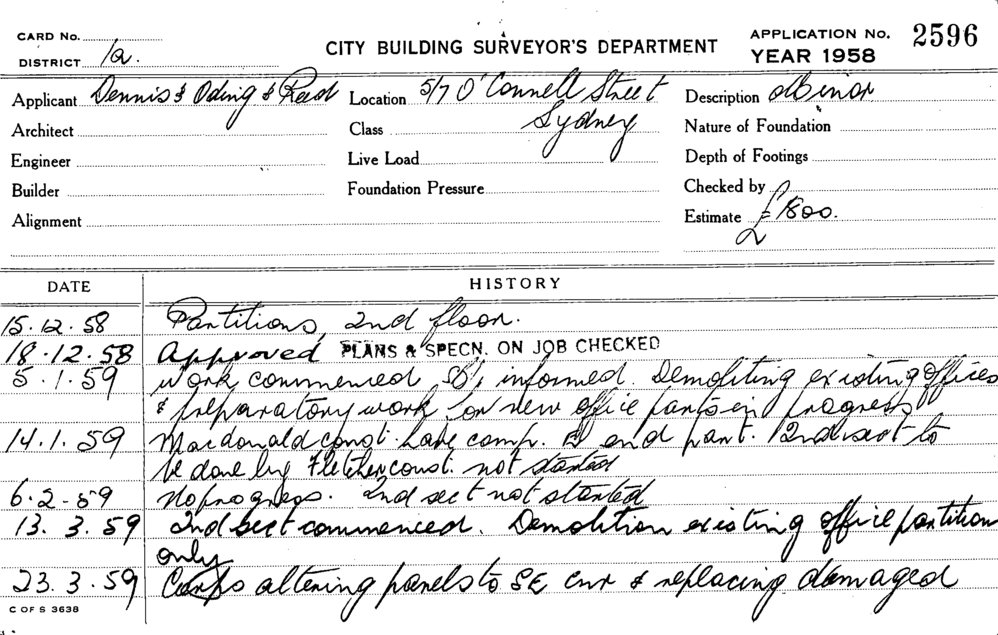 CARD No.
CITY BUILDING SURVEYOR'S DEPARTMENT
APPLICATION No. 2596
DISTRICT 1a.
YEAR 1958
Applicant Dennis & Oding & Read
Location 5/7 O'Connell Street
Sydney
Description Minor
Architect
Class
Nature of Foundation
Engineer
Live Load
Depth of Footings
Builder
Foundation Pressure
Checked by
Alignment
Estimate £1800.
DATE
HISTORY
15.12.58 Partitions, 2nd floor.
18.12.58 Approved PLANS & SPECN. ON JOB CHECKED
5.1.59 Work commenced informed. Demoliting existing offices
& preparatory work for new office parts in progress
14.1.59 Macdonald const. have comp. end part. 2nd sect to
be done by Fletcher const. not started
6.2.59 No progress. 2nd sect not started
13.3.59 2nd sect commenced. Demolition existing office partition
only
23.3.59 Carps altering panels to SE cnr & replacing damaged
C OF S 3638